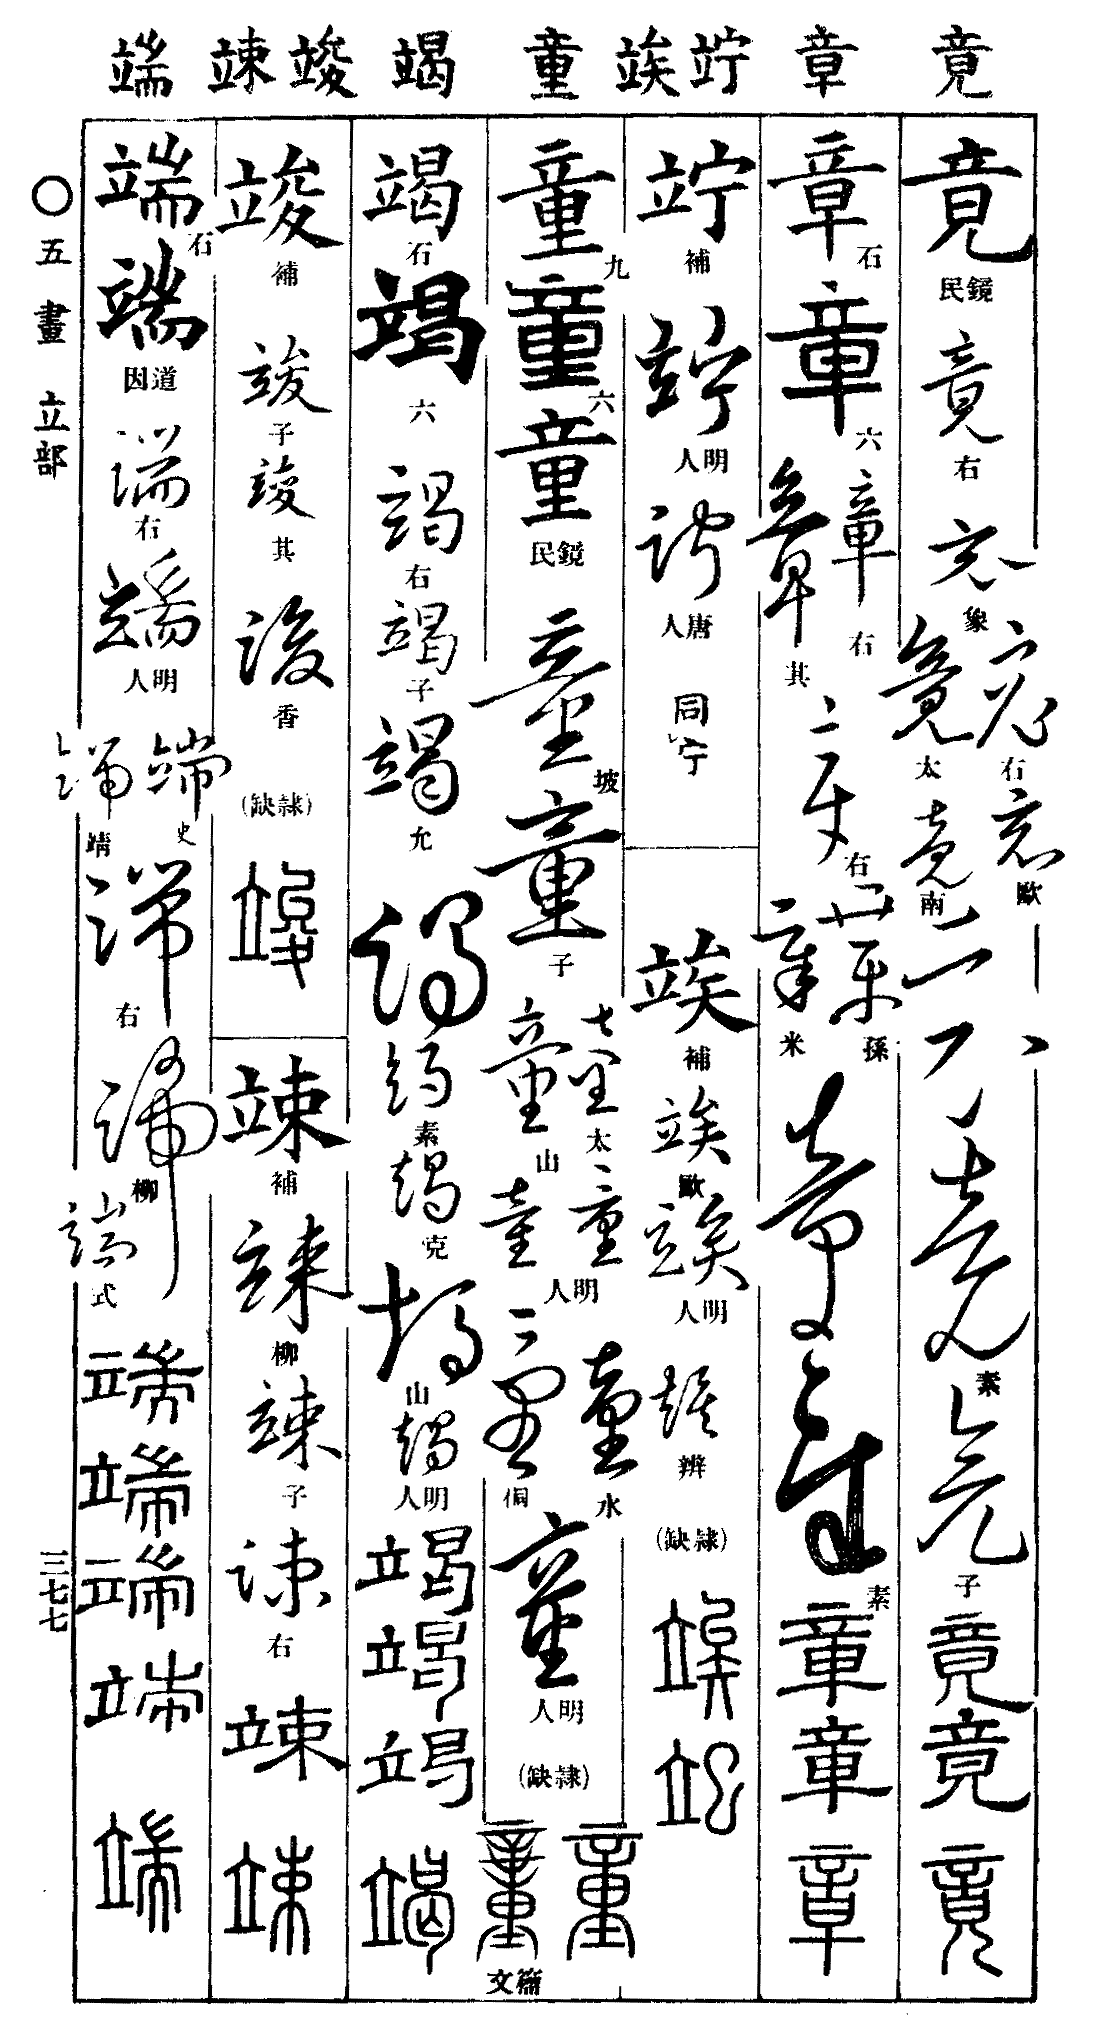 竟 章 竚 竢 童 竭 竣 竦 端
竟
民鏡
竟
右
竟
象
竟
右
竟
太
竟
歐
竟
南
竟
竟
素
竟
子
竟
竟
竟
章
石
章
六
章
右
章
其
章
右
章
孫
章
米
章
章
素
章
章
章
竚
補
竚
人明
竚
人唐
同
宁
竢
補
竢
歐
竢
人明
竢
辨
(缺隷)
竢
竢
童
九
童
六
童
民鏡
童
坡
童
子
童
太
童
山
童
童
人明
童
水
童
侗
童
人明
(缺隷)
童
童
文籀
竭
石
竭
六
竭
右
竭
子
竭
允
竭
竭
素
竭
克
竭
山
竭
人明
竭
竭
竭
竭
竣
補
竣
子
竣
其
竣
香
(缺隷)
竣
竦
補
竦
柳
竦
子
竦
右
竦
竦
端
石
端
因道
端
右
端
人明
端
史
端
靖
端
右
端
柳
端
式
端
端
端
端
端
〇五畫 立部
三七七